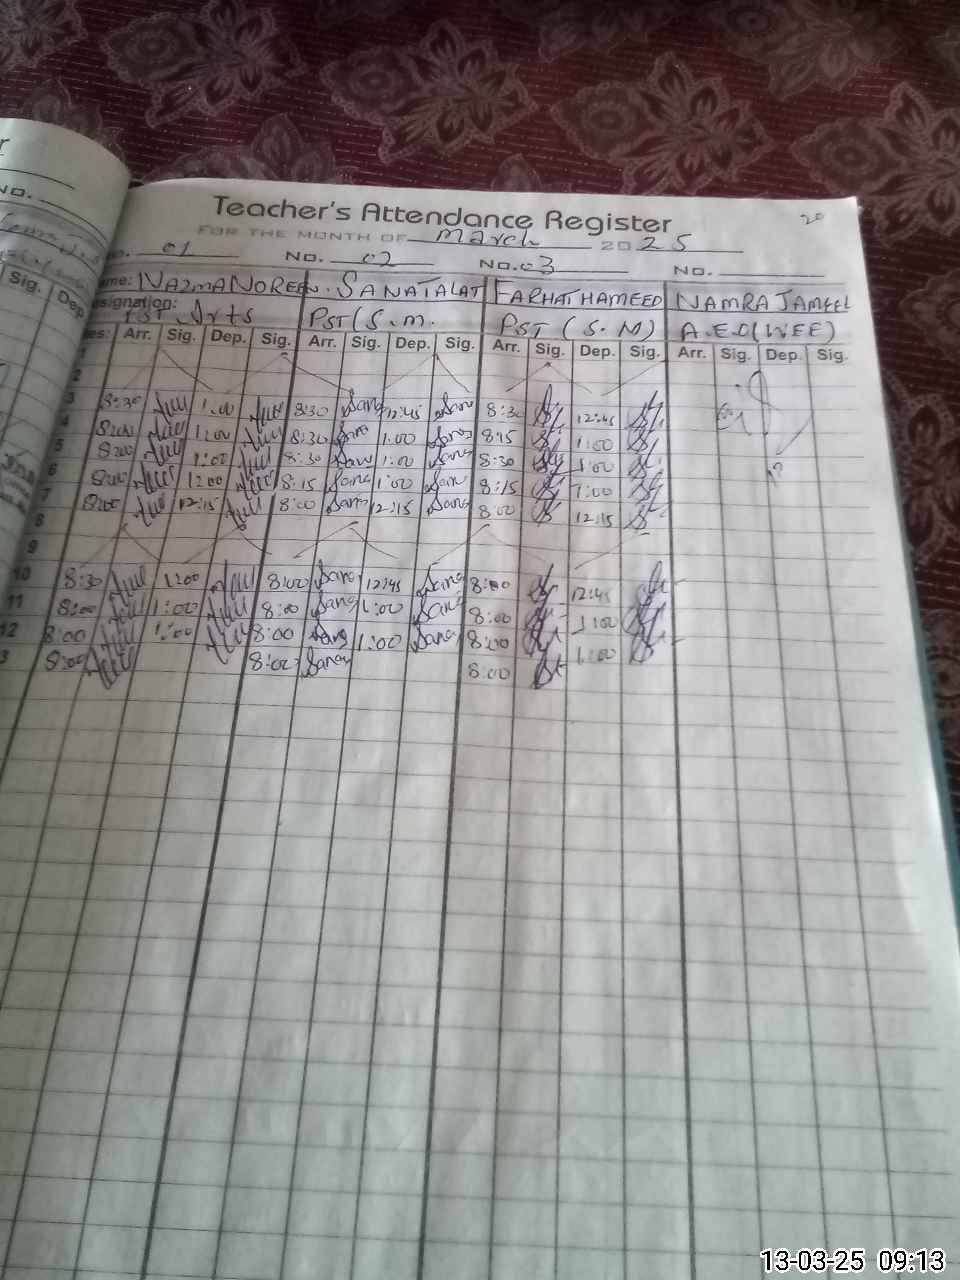 Teacher's Attendance Register
20
FOR THE MONTH OF March 2025
No. 01 No. 02 No. 03 No.
Name: NAZMA NOREEN. SANATALAT FARHAT HAMEED NAMRA JAMEEL
Designation: PST Arts PST (S.M. PST (S.M) A.E.O (WEE)
Arr. Sig. Dep. Sig. Arr. Sig. Dep. Sig. Arr. Sig. Dep. Sig. Arr. Sig. Dep. Sig.
2
3 8:30 1:00 8:30 Sana 12:45 Sana 8:30 12:45
4 8:00 1:00 8:30 Sana 1:00 Sana 8:15 1:00
5 8:00 1:00 8:30 Sana 1:00 Sana 8:30 1:00
6 8:00 1:00 8:15 Sana 1:00 Sana 8:15 1:00
7 8:00 12:15 8:00 Sana 12:15 Sana 8:00 12:15
8
9
10 8:30 1:00 8:00 Sana 12:45 Sana 8:00 12:45
11 8:00 1:00 8:00 Sana 1:00 Sana 8:00 1:00
12 8:00 1:00 8:00 Sana 1:00 Sana 8:00 1:00
3 8:00 8:00 Sana 8:00
13-03-25 09:13